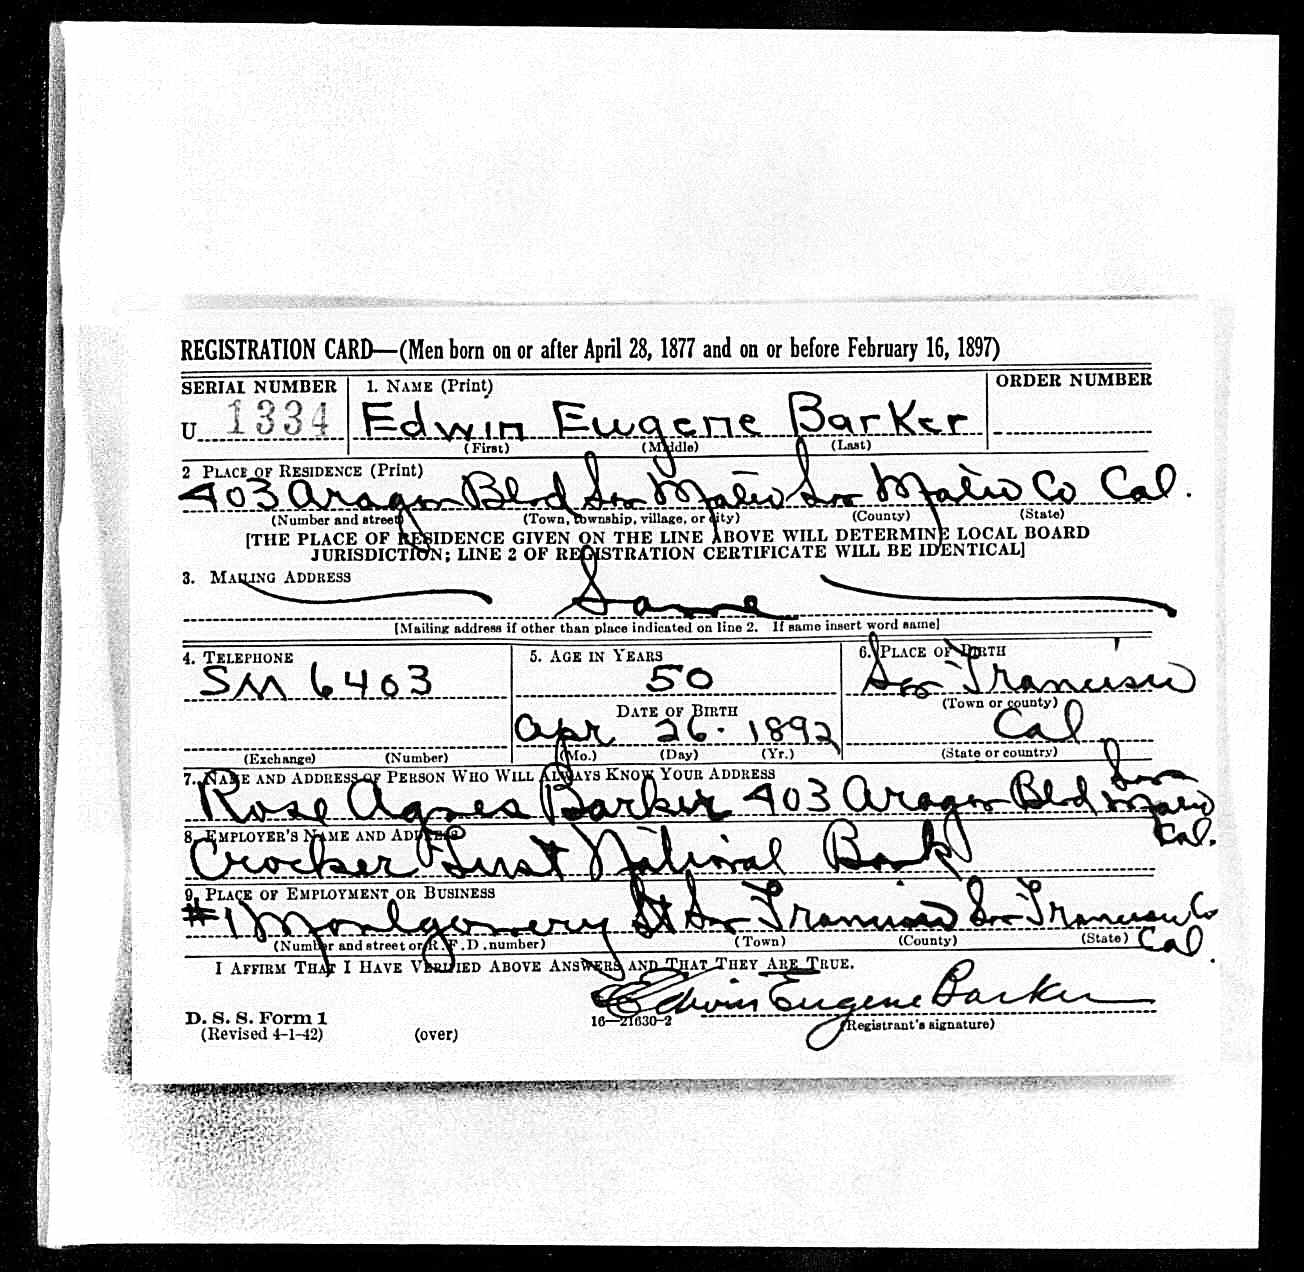 REGISTRATION CARD—(Men born on or after April 28, 1877 and on or before February 16, 1897)
SERIAL NUMBER 1. NAME (Print) ORDER NUMBER
U 1334 Edwin Eugene Barker
(First) (Middle) (Last)
2 PLACE OF RESIDENCE (Print)
403 Aragon Blvd San Mateo San Mateo Co Cal.
(Number and street) (Town, township, village, or city) (County) (State)
[THE PLACE OF RESIDENCE GIVEN ON THE LINE ABOVE WILL DETERMINE LOCAL BOARD
JURISDICTION; LINE 2 OF REGISTRATION CERTIFICATE WILL BE IDENTICAL]
3. MAILING ADDRESS
Same
[Mailing address if other than place indicated on line 2. If same insert word same]
4. TELEPHONE 5. AGE IN YEARS 6. PLACE OF BIRTH
SM 6403 50 San Francisco
DATE OF BIRTH (Town or county)
Apr 26. 1892 Cal
(Exchange) (Number) (Mo.) (Day) (Yr.) (State or country)
7. NAME AND ADDRESS OF PERSON WHO WILL ALWAYS KNOW YOUR ADDRESS
Rose Agnes Barker 403 Aragon Blvd San Mateo Cal.
8. EMPLOYER'S NAME AND ADDRESS
Crocker First National Bank
9. PLACE OF EMPLOYMENT OR BUSINESS
#1 Montgomery St San Francisco San Francisco Co Cal.
(Number and street or R. F. D. number) (Town) (County) (State)
I AFFIRM THAT I HAVE VERIFIED ABOVE ANSWERS AND THAT THEY ARE TRUE.
Edwin Eugene Barker
D. S. S. Form 1 16—21630-2 (Registrant's signature)
(Revised 4-1-42) (over)